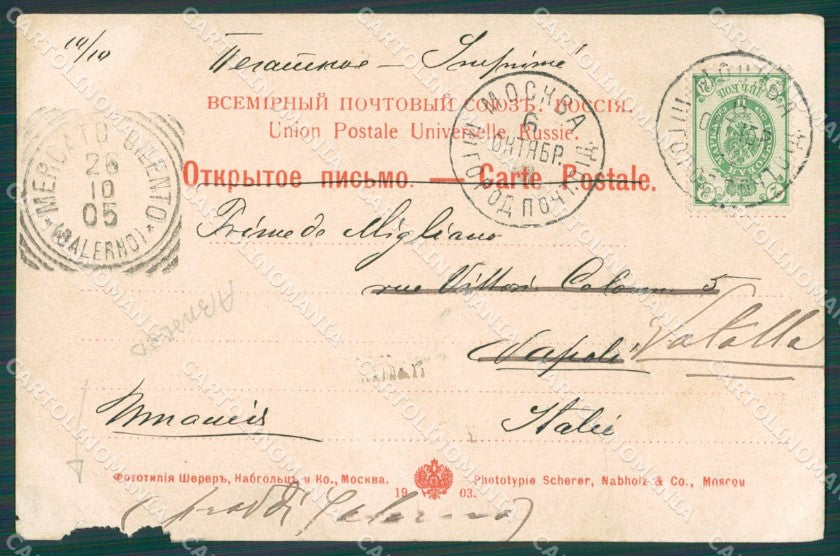 14/10
Печатное — Imprimé
ВСЕМІРНЫЙ ПОЧТОВЫЙ СОЮЗЪ. РОССІЯ.
Union Postale Universelle. Russie.
Открытое письмо. — Carte Postale.
МОСКВА
6
ОКТЯБР.
МОСКВА
MERCATO CILENTO
26
10
05
(SALERNO)
Prince de Migliano
rue Vittoria Colonna 5
Napoli Vatolla
Италія
Italie
Фототипія Шереръ, Набгольцъ и Ко., Москва.
1903.
Phototypie Scherer, Nabholz & Co., Moscou
(prov di Salerno)
CARTOLINOMANIA